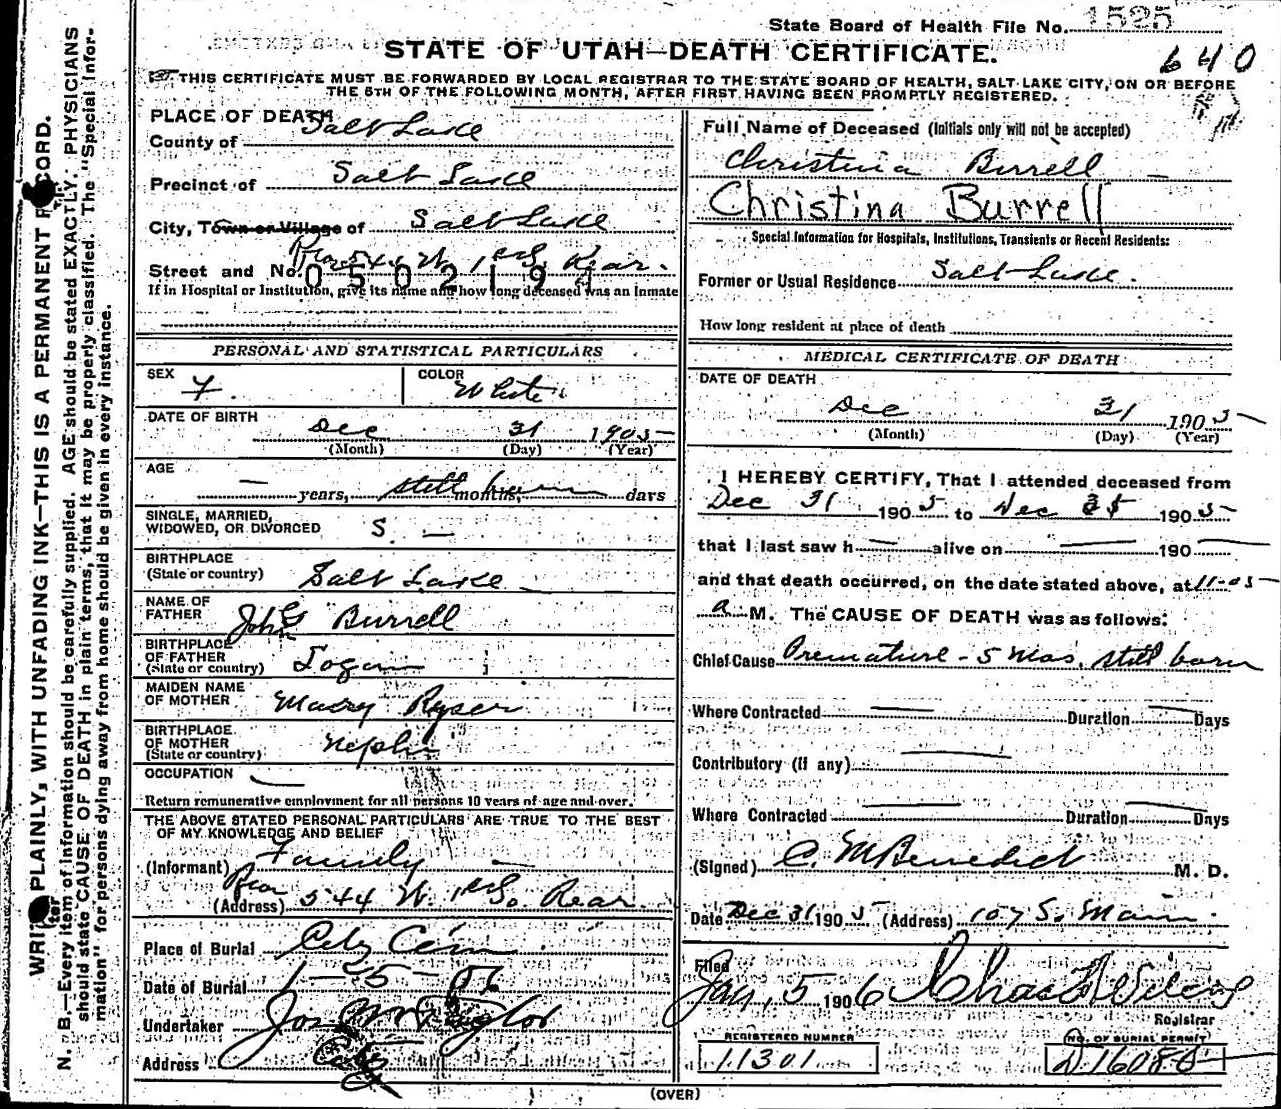 State Board of Health File No. 1525
STATE OF UTAH—DEATH CERTIFICATE.
640
THIS CERTIFICATE MUST BE FORWARDED BY LOCAL REGISTRAR TO THE STATE BOARD OF HEALTH, SALT LAKE CITY, ON OR BEFORE
THE 5TH OF THE FOLLOWING MONTH, AFTER FIRST HAVING BEEN PROMPTLY REGISTERED.
PLACE OF DEATH
County of Salt Lake
Precinct of Salt Lake
City, Town or Village of Salt Lake
Street and No. Rear 544 W. 1st So. Rear.
050219
If in Hospital or Institution, give its name and how long deceased was an inmate
PERSONAL AND STATISTICAL PARTICULARS
SEX F.
COLOR White
DATE OF BIRTH
Dec 31 1905
(Month) (Day) (Year)
AGE
— years, still born months, days
SINGLE, MARRIED,
WIDOWED, OR DIVORCED S. —
BIRTHPLACE
(State or country) Salt Lake
NAME OF
FATHER John G Burrell
BIRTHPLACE
OF FATHER
(State or country) Logan
MAIDEN NAME
OF MOTHER Mary Ryser
BIRTHPLACE
OF MOTHER
(State or country) Nephi
OCCUPATION —
Return remunerative employment for all persons 10 years of age and over.
THE ABOVE STATED PERSONAL PARTICULARS ARE TRUE TO THE BEST
OF MY KNOWLEDGE AND BELIEF
(Informant) Family —
(Address) Rear 544 W. 1st So. Rear.
Place of Burial City Cem
Date of Burial 1-25-06
Undertaker Jos Wm Taylor
Address City
Full Name of Deceased (Initials only will not be accepted)
Christina Burrell
Christina Burrell
Special Information for Hospitals, Institutions, Transients or Recent Residents:
Former or Usual Residence Salt Lake.
How long resident at place of death
MEDICAL CERTIFICATE OF DEATH
DATE OF DEATH
Dec 31 1905
(Month) (Day) (Year)
I HEREBY CERTIFY, That I attended deceased from
Dec 31 1905 to Dec 1905
that I last saw h— alive on — 190—
and that death occurred, on the date stated above, at 11-05
a M. The CAUSE OF DEATH was as follows:
Chief Cause Premature - 5 mos. still born
Where Contracted — Duration — Days
Contributory (if any) —
Where Contracted — Duration — Days
(Signed) C. M Benedict M. D.
Date Dec 31 1905 (Address) 107 So. Main.
Filed
Jan, 5 1906
Registrar
REGISTERED NUMBER
11301
NO. OF BURIAL PERMIT
D 16080
(OVER)
WRITE PLAINLY, WITH UNFADING INK—THIS IS A PERMANENT RECORD.
N. B.—Every item of information should be carefully supplied. AGE should be stated EXACTLY. PHYSICIANS
should state CAUSE OF DEATH in plain terms, that it may be properly classified. The "Special Infor-
mation" for persons dying away from home should be given in every instance.